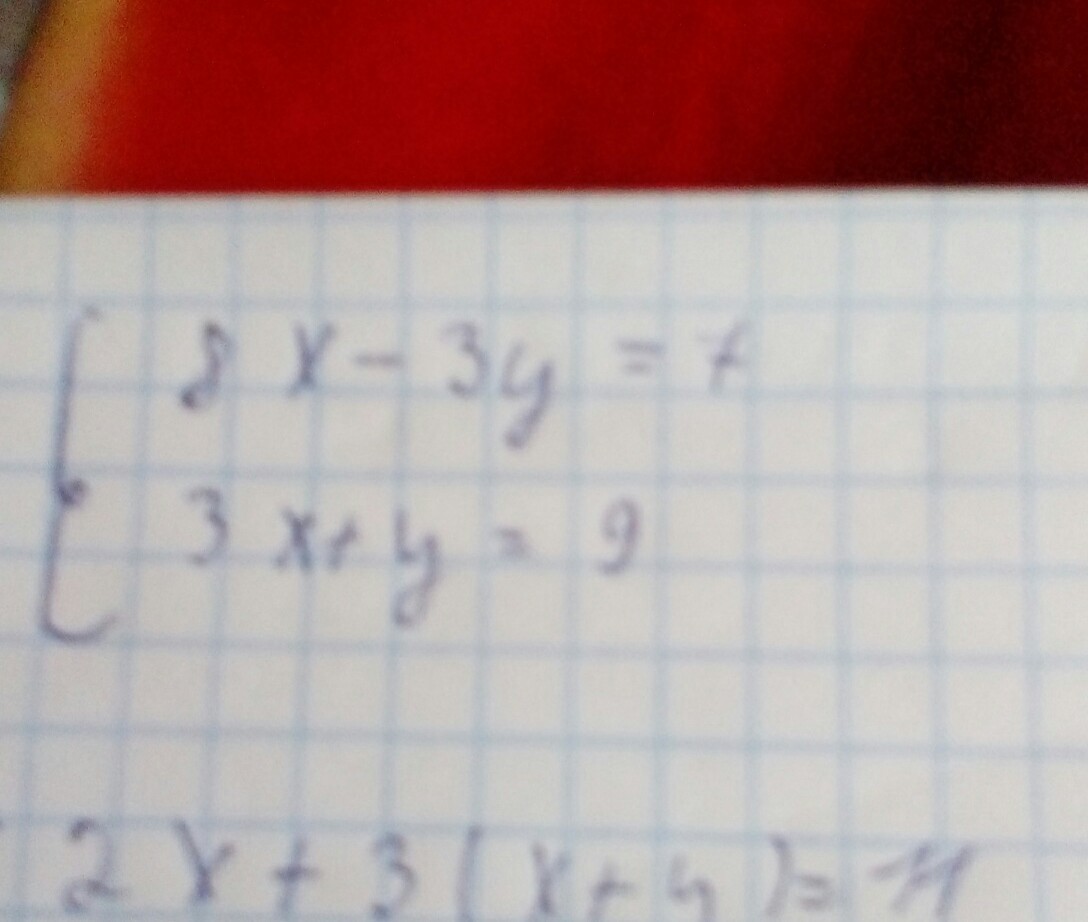 8x - 3y = 7
3x + y = 9
2x + 3(x + y) = 11